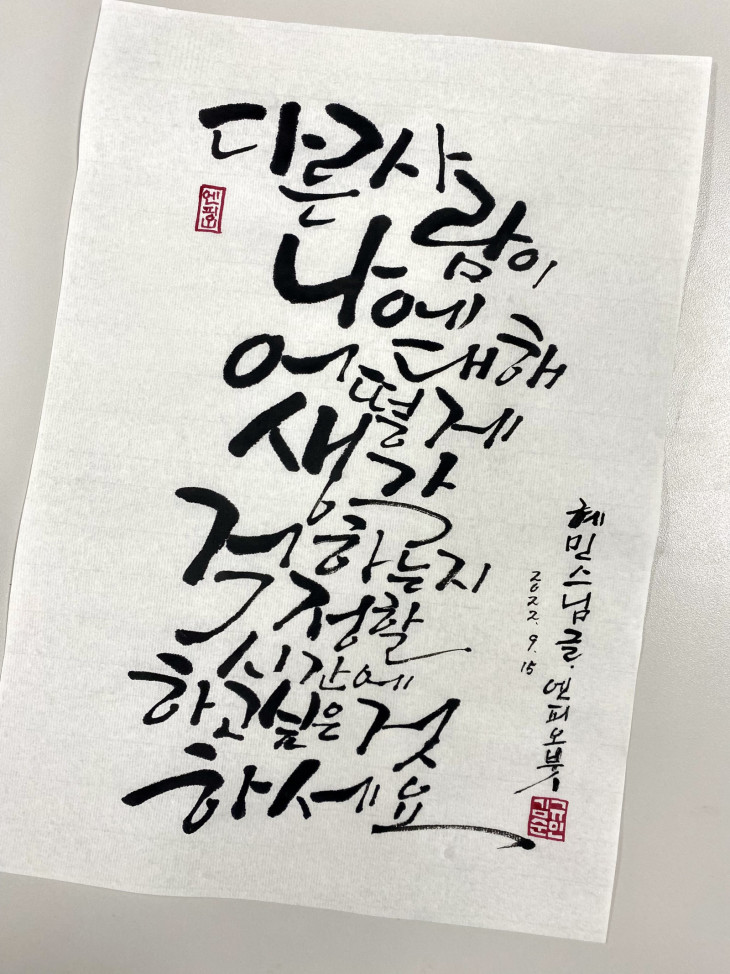 다른사람이
나에대해
어떻게
생각
하는지
걱정할
시간에
하고싶은 것
하세요
혜민스님글.엔피오붓
2022. 9. 15